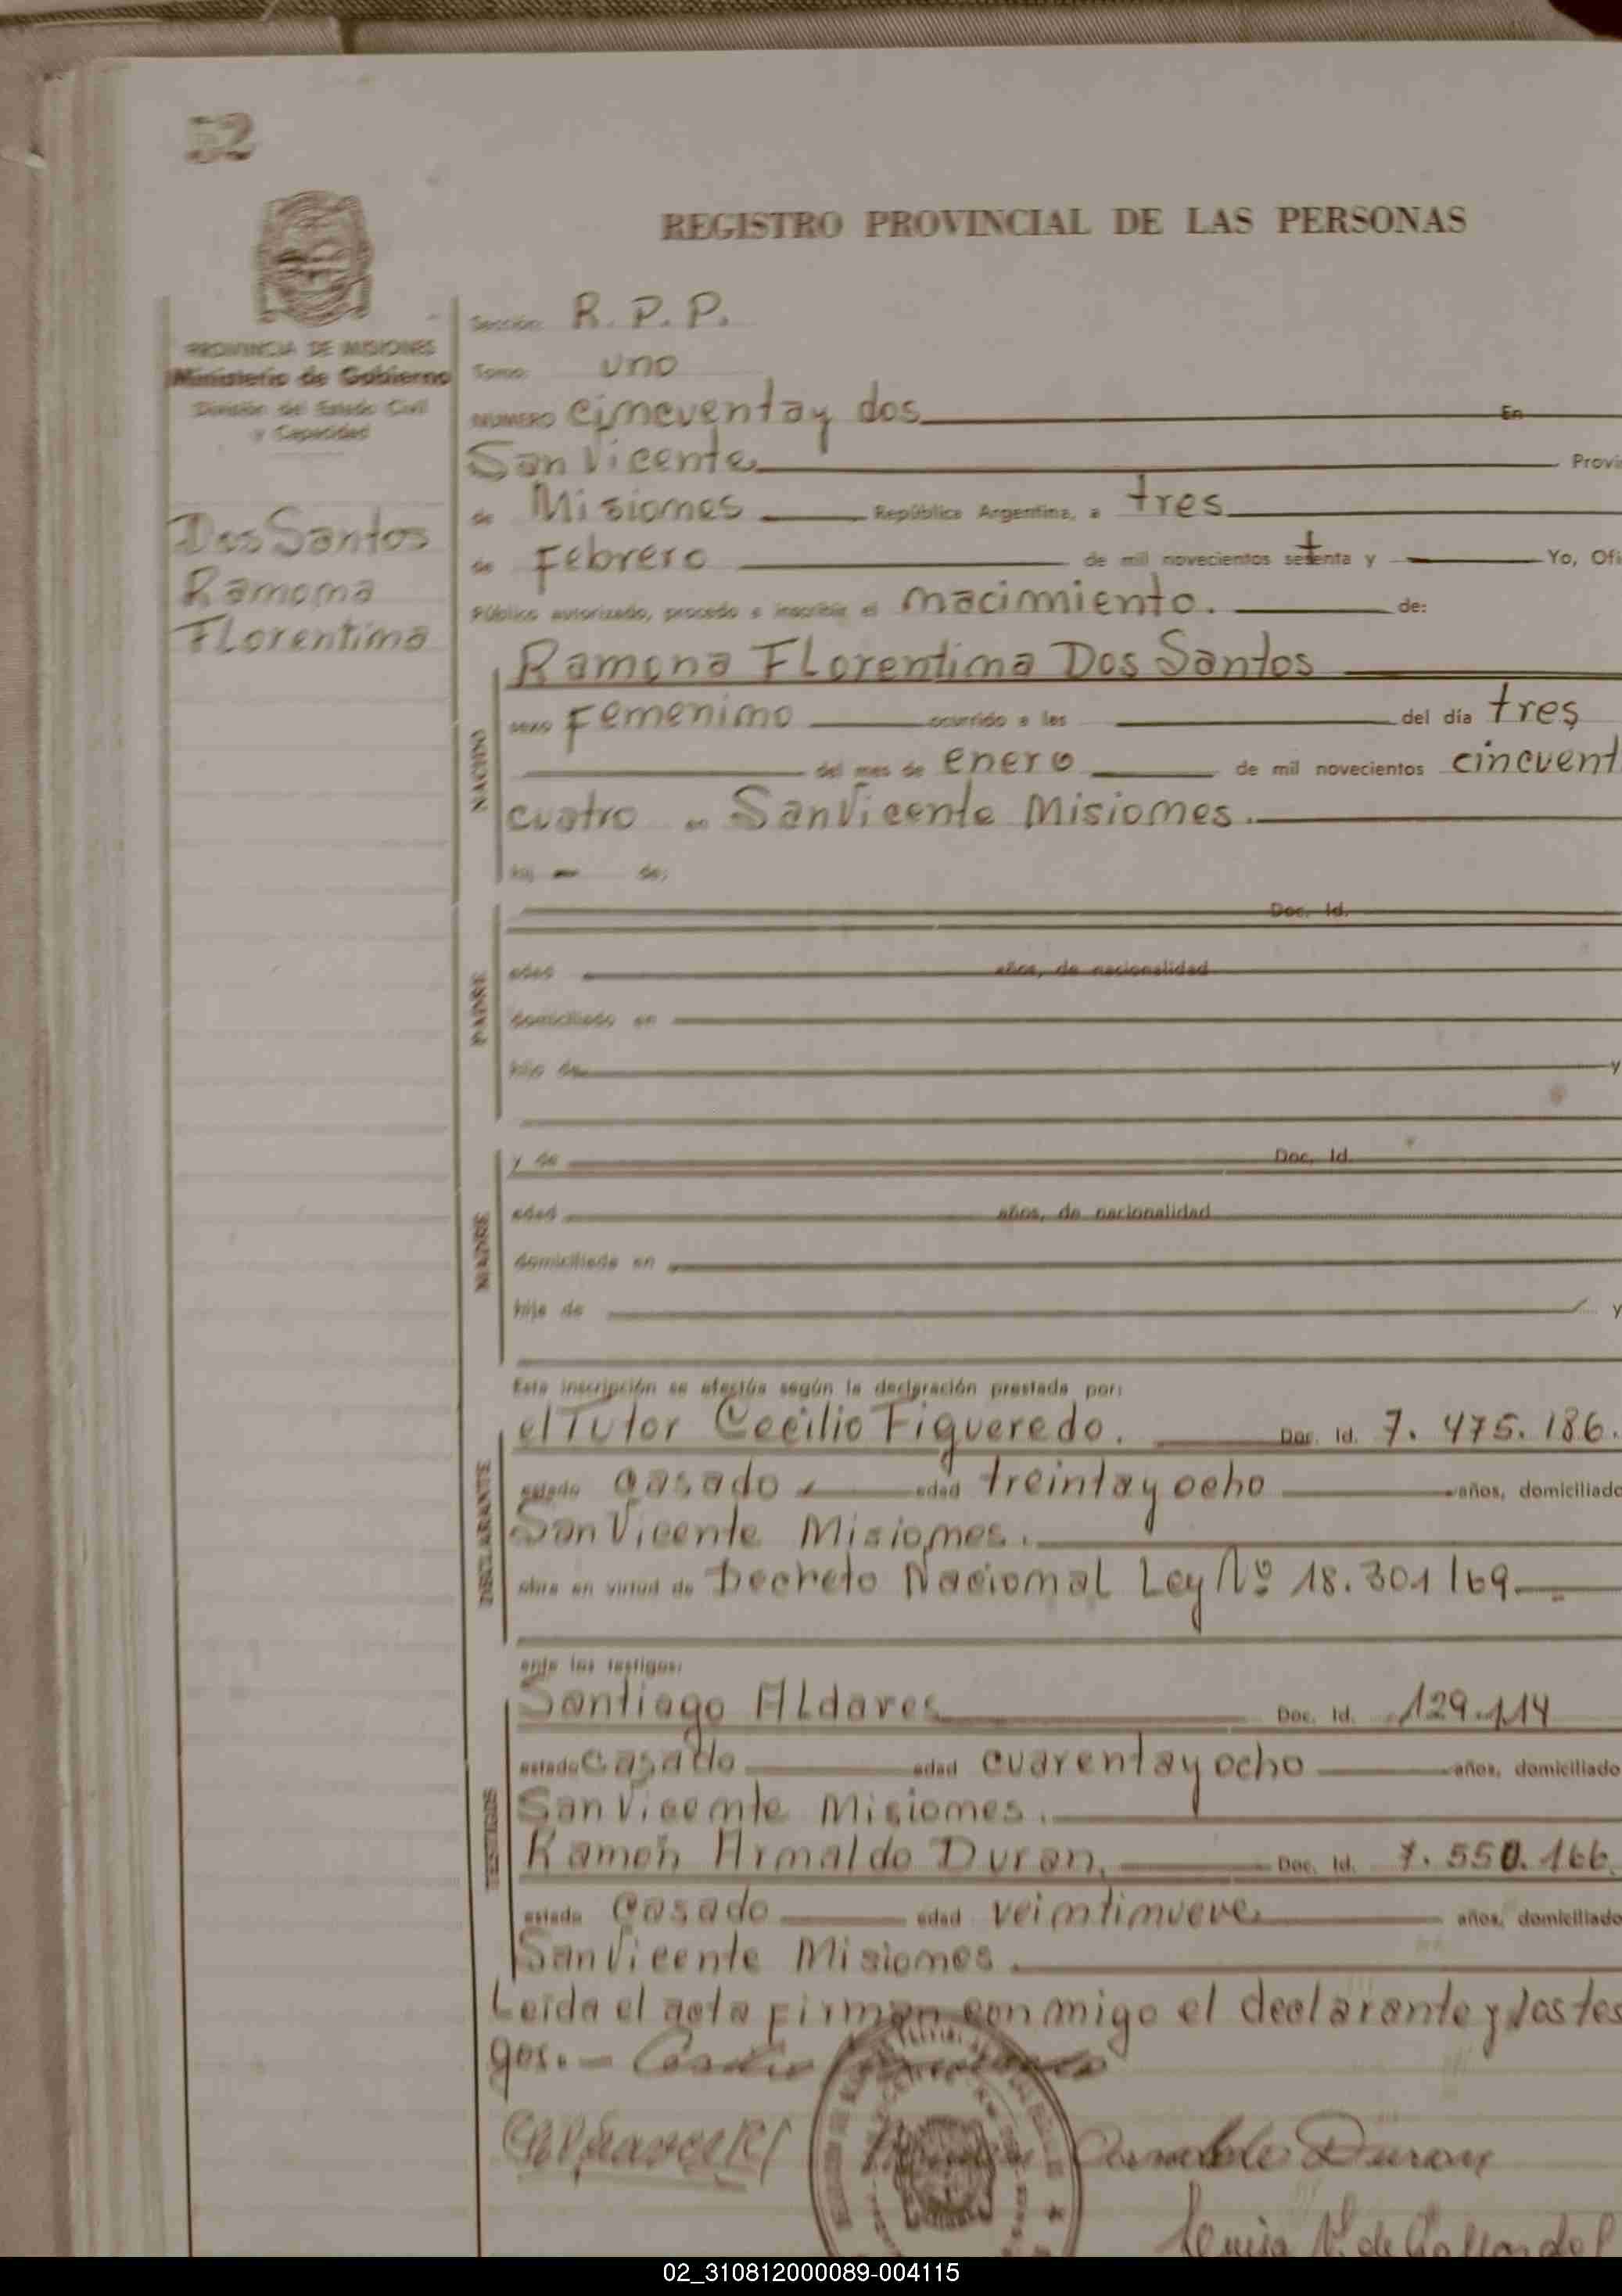 52
REGISTRO PROVINCIAL DE LAS PERSONAS
PROVINCIA DE MISIONES
Ministerio de Gobierno
División del Estado Civil
y Capacidad
Dos Santos
Ramona
Florentina
Sección: R. P. P.
Tomo: uno
NUMERO cincuenta y dos En
San Vicente Provi
de Misiones República Argentina, a tres
de Febrero de mil novecientos setenta y Yo, Ofi
Público autorizado, procedo a inscribir el nacimiento. de:
NACIDO
Ramona Florentina Dos Santos
sexo Femenino ocurrido a las del día tres
del mes de enero de mil novecientos cincuent
cuatro en San Vicente Misiones.
hij de:
PADRE
Doc. Id.
edad años, de nacionalidad
domiciliado en
hijo de y
MADRE
y de Doc. Id.
edad años, de nacionalidad
domiciliada en
hija de y
Esta inscripción se efectúa según la declaración prestada por:
DECLARANTE
el Tutor Cecilio Figueredo. Doc. Id. 7.475.186.
estado casado edad treinta y ocho años, domiciliado
San Vicente Misiones.
obra en virtud de Decreto Nacional Ley Nº 18.301/69
ante los testigos:
TESTIGOS
Santiago Aldares Doc. Id. 129.114
estado casado edad cuarenta y ocho años, domiciliado
San Vicente Misiones.
Ramón Arnaldo Duran, Doc. Id. 7.550.166.
estado casado edad veintinueve años, domiciliado
San Vicente Misiones.
Leída el acta firman conmigo el declarante y los tes
gos.-
Duran
02_310812000089-004115